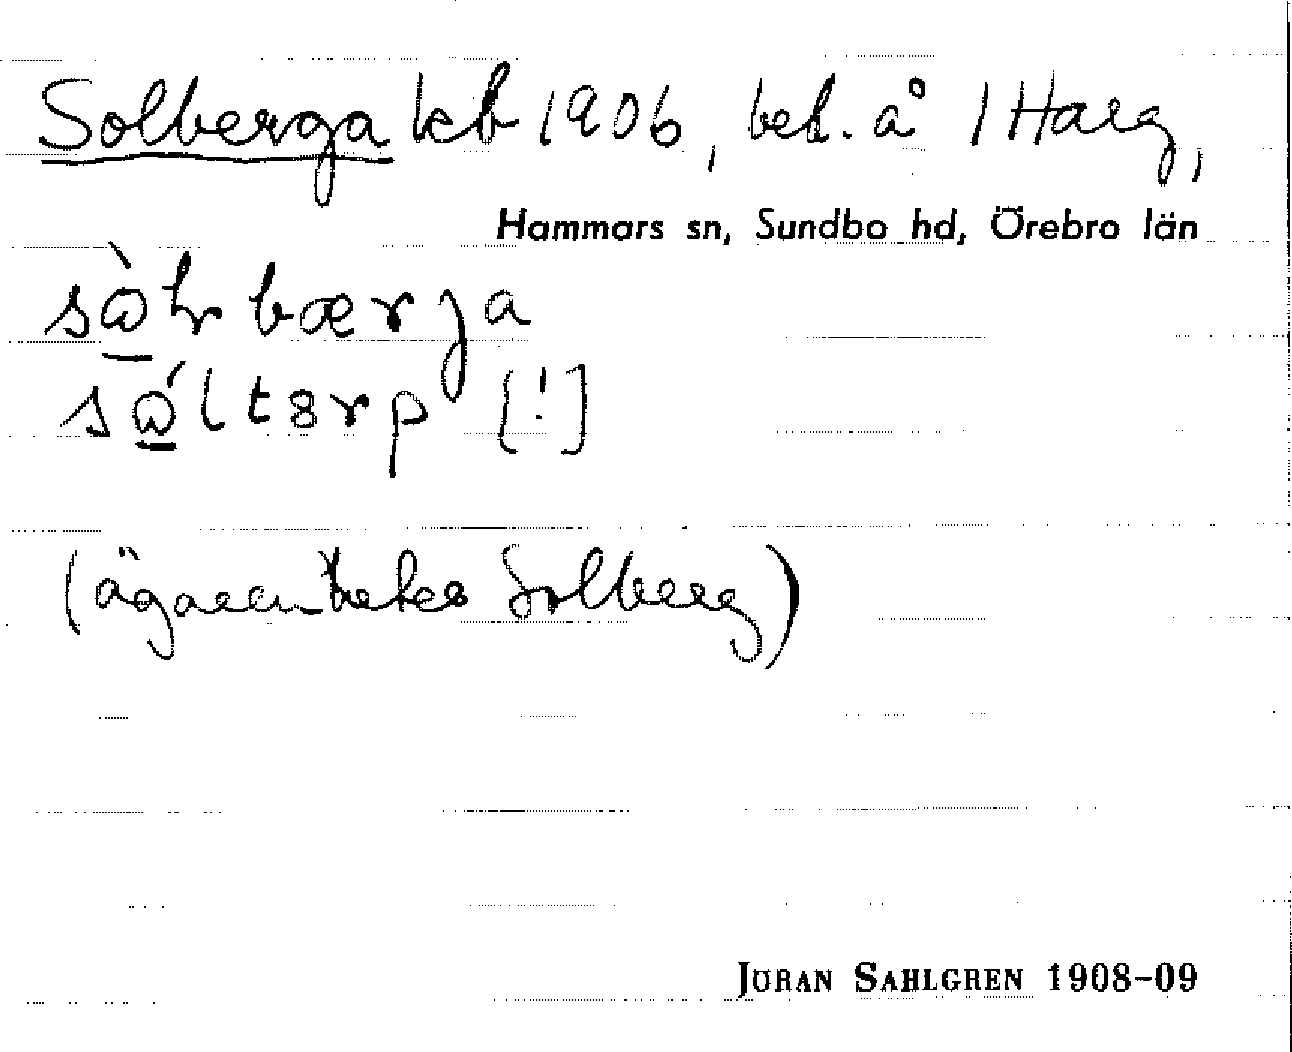 Solberga kb 1906, bet. å 1 Harg,
Hammars sn, Sundbo hd, Örebro län
sὼlrbærga
sώltɜrp [!]
(ägaren heter Solberg)
JÖRAN SAHLGREN 1908–09